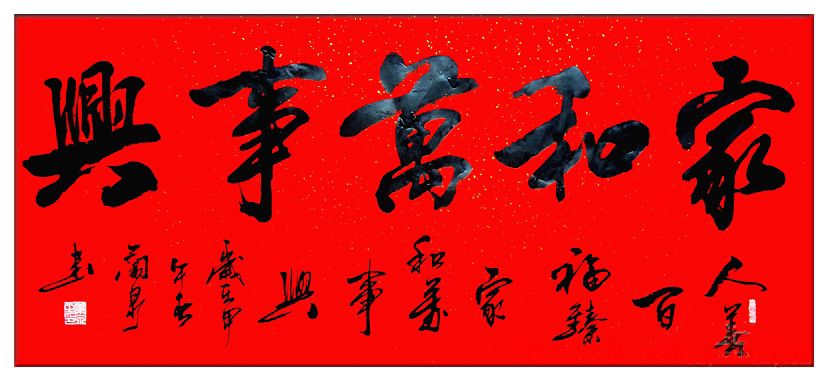 家和萬事興
人善百福臻家和萬事興歲在甲午書